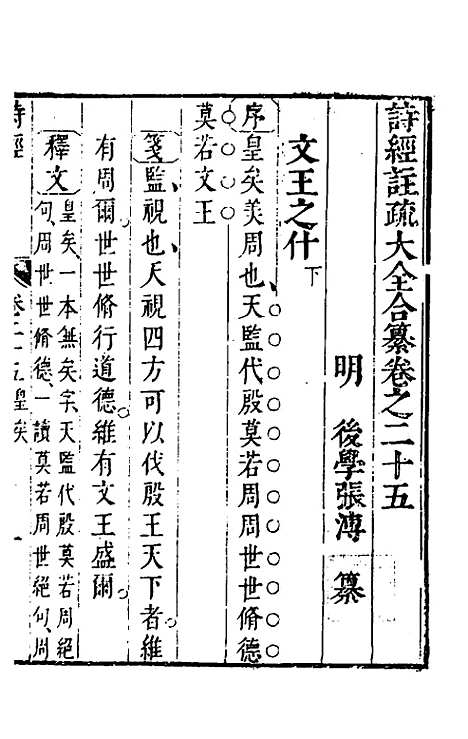 詩經註疏大全合纂卷之二十五
明　後學張溥　纂
文王之什下
序皇矣美周也天監代殷莫若周周世世脩德
莫若文王
箋監視也天視四方可以代殷王天下者維
有周爾世世脩行道德維有文王盛爾
釋文皇矣一本無矣字天監代殷莫若周絕
句周世世脩德一讀莫若周世絕句周
詩經
卷二十五皇矣
一